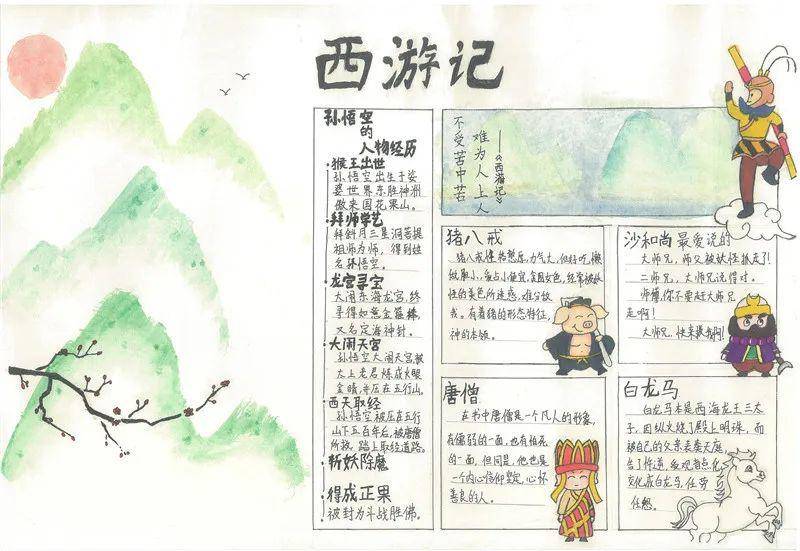 西游记
孙悟空
的
人物经历
·猴王出世
孙悟空出生于娑
婆世界东胜神洲
傲来国花果山。
·拜师学艺
拜斜月三星洞菩提
祖师为师，得到姓
名孙悟空。
·龙宫寻宝
大闹东海龙宫，终
寻得如意金箍棒，
又名定海神针。
·大闹天宫
孙悟空大闹天宫，被
太上老君炼成火眼
金睛，并压在五行山。
·西天取经
孙悟空被压在五行
山下五百年后，被唐僧
所救，踏上取经道路。
·斩妖除魔
·得成正果
被封为斗战胜佛。
不受苦中苦
难为人上人
——《西游记》
猪八戒
猪八戒憨厚，力气大，但好吃，懒
做，胆小，爱占小便宜，贪图女色，经常被妖
怪的美色所迷惑，难分敌
我。有着猪的形态特征，
神的本领。
沙和尚最爱说的
大师兄，师父被妖怪抓走了！
二师兄，大师兄说得对。
师傅，你不要赶大师兄
走啊！
大师兄，快来救我们！
唐僧
在书中唐僧是一个凡人的形象，
有懦弱的一面，也有怕死
的一面，但同是，他也是
一个内心信仰坚定，心怀
善良的人。
白龙马
白龙马本是西海龙王三太
子，因纵火烧了殿上明珠，而
被自己的父亲表奏天庭，
告了忤逆，被观音点化，
变化成白龙马，任劳
任怨。